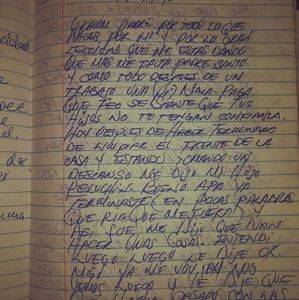 GRACIAS PADRE POR TODO LO QUE
HACES POR MI Y POR LA GRAN
QUE ME ESTAS DANDO
QUE MAS ME FALTA PADRE SANTO
Y COMO TODO DESPUES DE UN
TRABAJO UNA MALA PAGA
QUE FEO SE SIENTE QUE TUS
HIJOS NO TE TENGAN CONFIANZA.
HOY DESPUES DE HABER TERMINADO
DE LIMPIAR EL FRENTE DE LA
CASA Y ESTANDO TOMANDO UN
DESCANSO ME DIJO MI HIJO
BUENO APA YA
TERMINASTE EN POCAS PALABRAS
QUERIA QUE ME FUERA Y
ASI FUE, ME DIJO QUE IVAN
HACER UNAS COSAS. ENTENDI
LUEGO LUEGO LE DIJE OK.
MIGO YA ME VOY, AH NOS
VEMOS LUEGO Y LE DIJE QUE
PASADO CON LAS